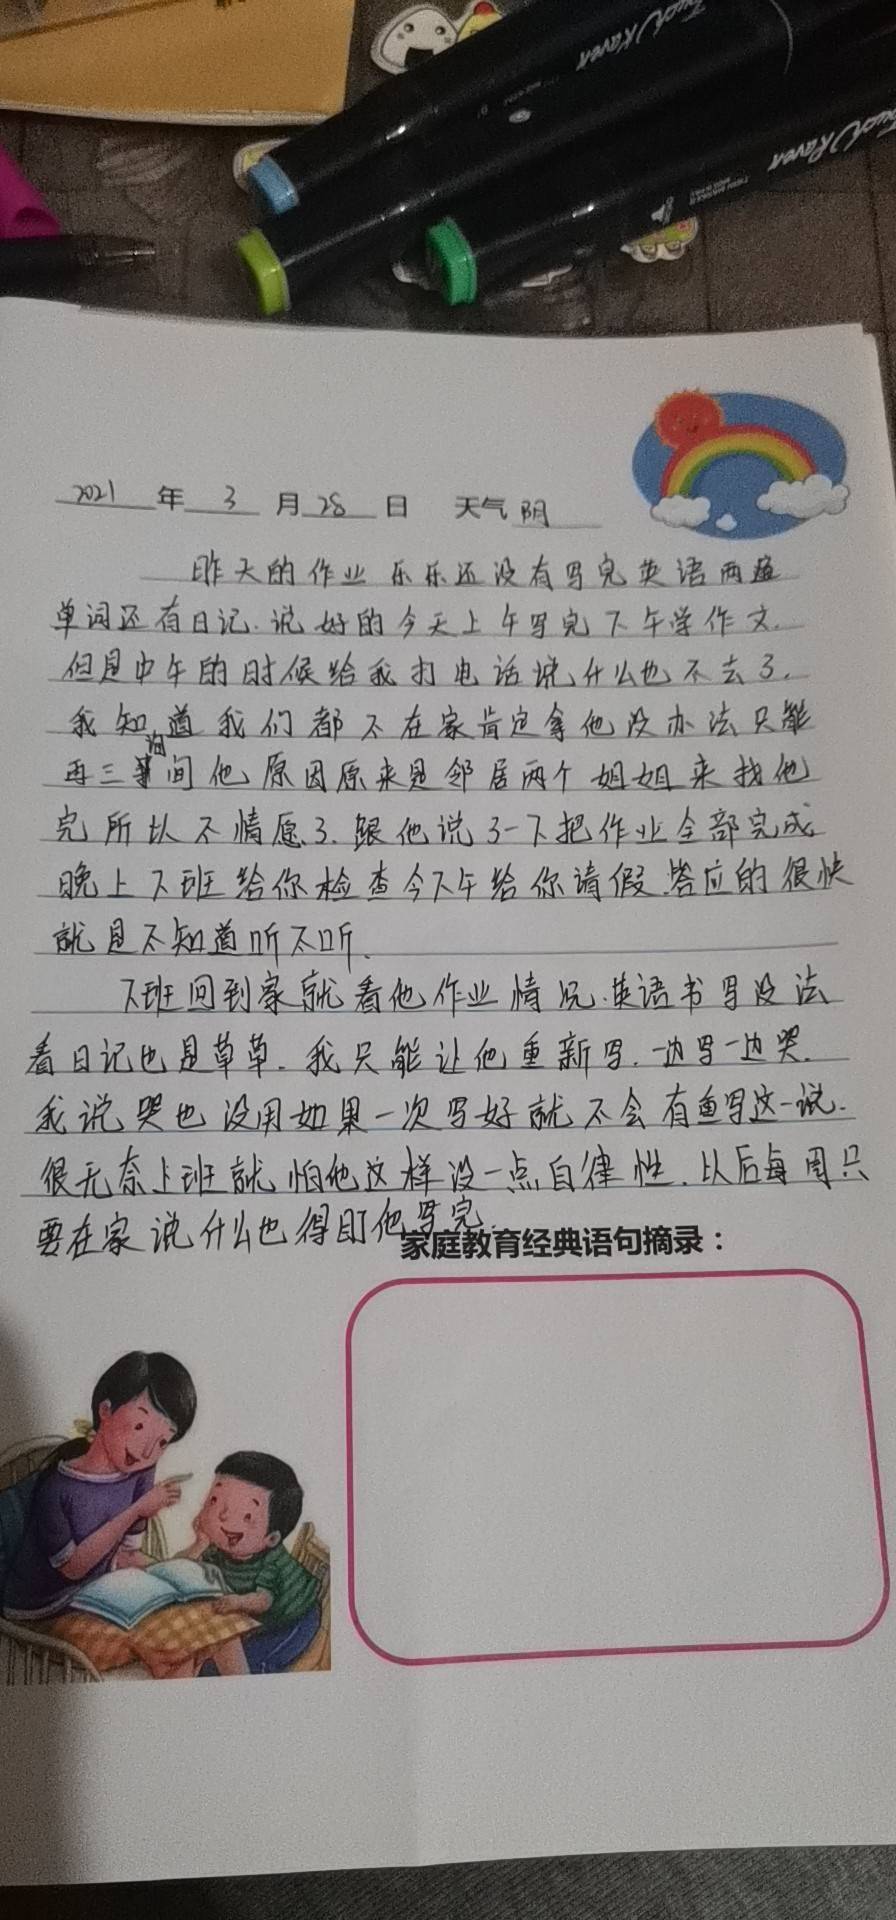 Touch Raven
Touch Raven
2021年3月28日 天气阴
昨天的作业乐乐还没有写完英语两遍
单词还有日记.说好的今天上午写完下午学作文.
但是中午的时候给我打电话说什么也不去了.
我知道我们都不在家肯定拿他没办法只能
再三询问他原因原来是邻居两个姐姐来找他
完所以不情愿了.跟他说了一下把作业全部完成
晚上下班给你检查今下午给你请假.答应的很快
就是不知道听不听.
下班回到家就看他作业情况.英语书写没法
看日记也是草草.我只能让他重新写.一边写一边哭.
我说哭也没用如果一次写好就不会有重写这一说.
很无奈上班就怕他这样没一点自律性.以后每周只
要在家说什么也得盯他写完.
家庭教育经典语句摘录：